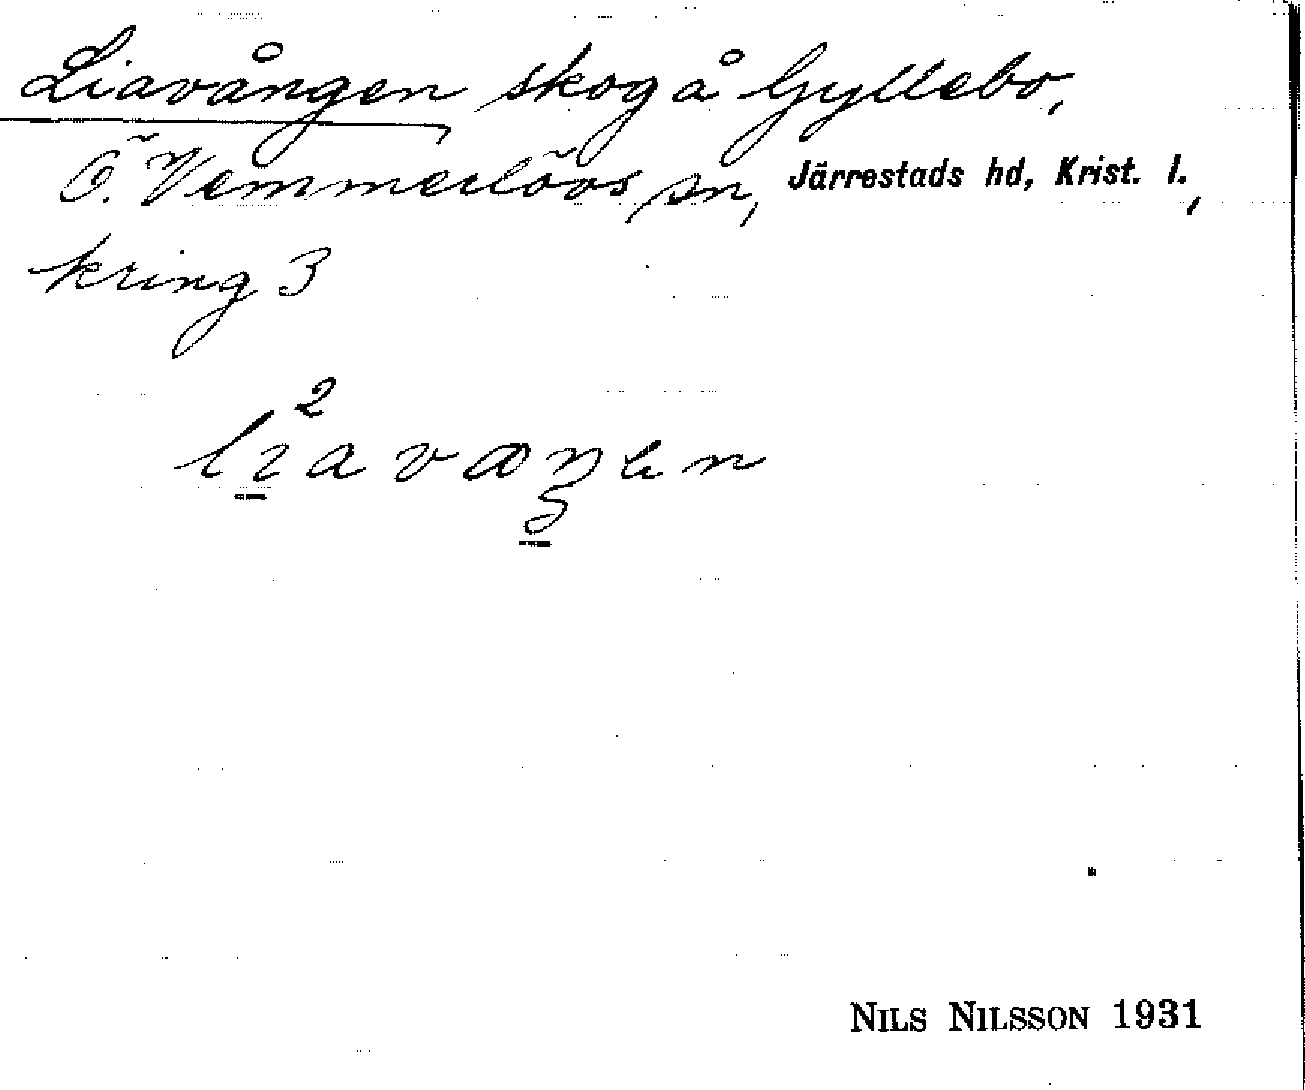 Liavången skog å Gyllebo,
Ö. Vemmerlövs sn, Järrestads hd, Krist. l.,
kring 3
2
liavaŋen
NILS NILSSON 1931